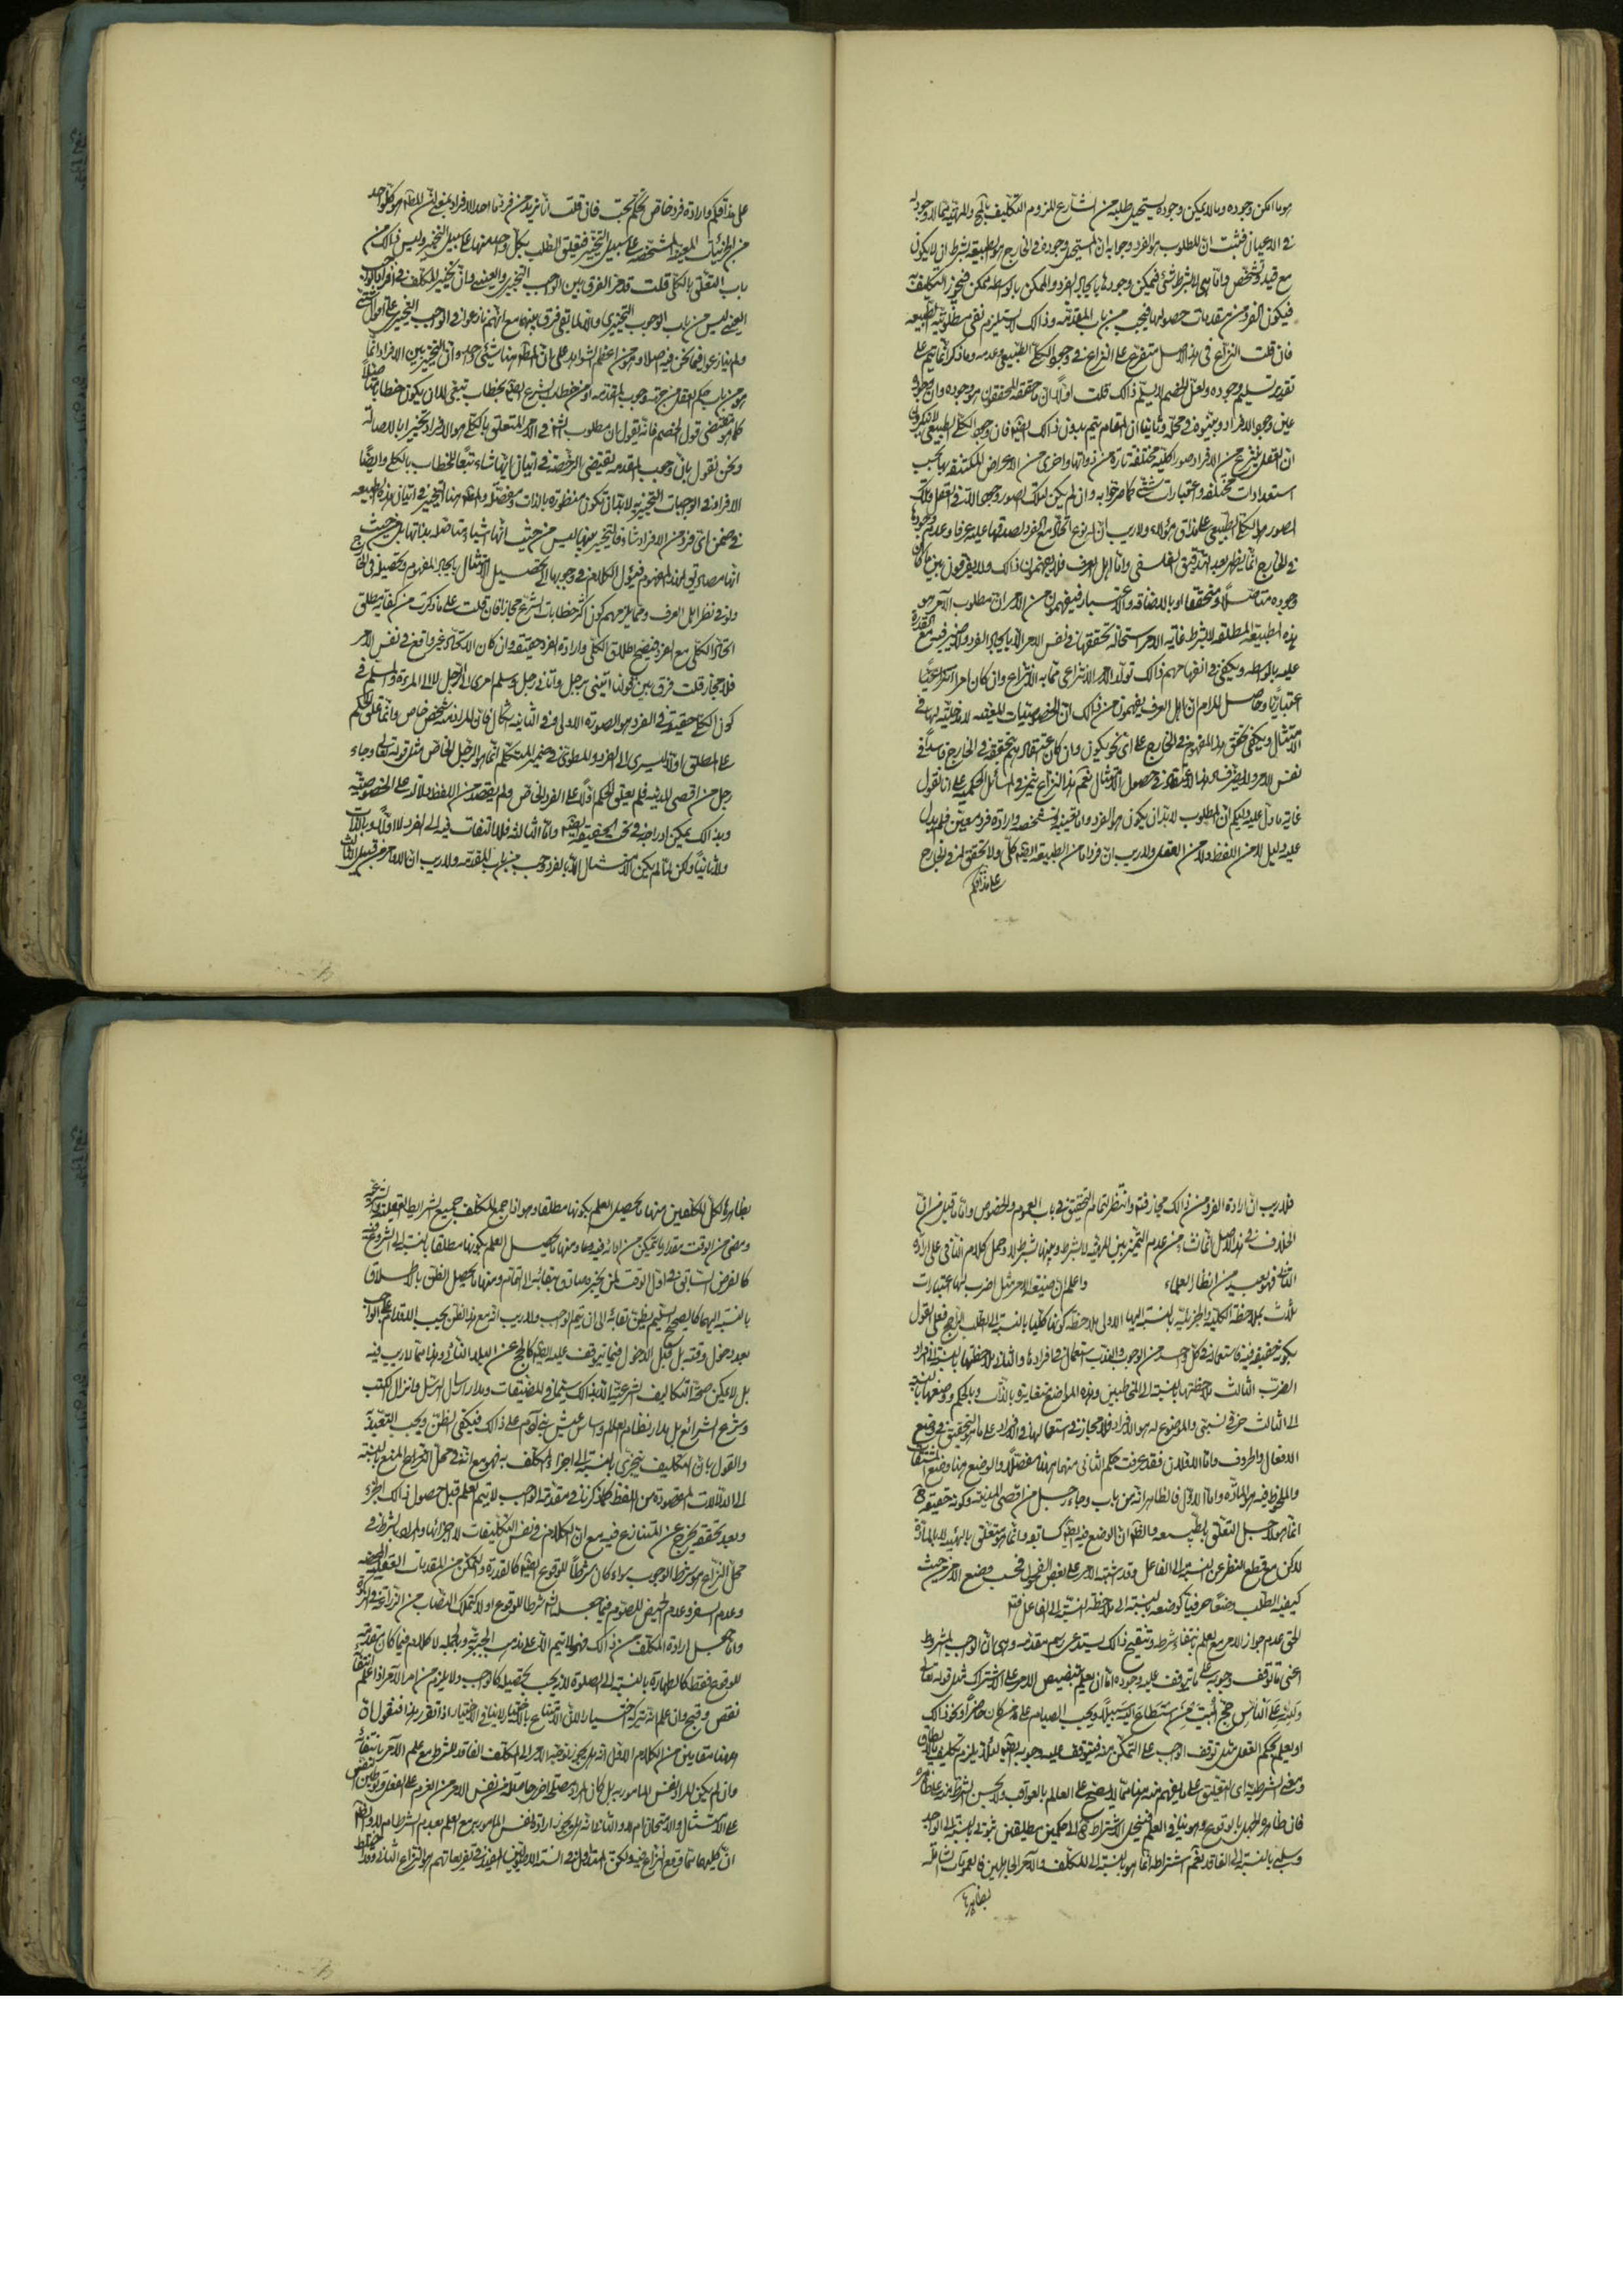 هو ما امكن وجوده وما لا يمكن وجوده يستحيل طلبه من الشارع للزوم التكليف بالمح والمهية مما لا وجود له
في الاعيان فثبت ان المطلوب هو الفرد وجوابه ان المستحيل وجوده في الخارج هو الطبيعة بشرط ان لا يكون
مع قيد وتشخص واما هي لا بشرط شئ فيمكن وجودها بايجاد الفرد والممكن بالواسطه ممكن فيجوز التكليف به
فيكون الفرد من مقدمات حصولها فيجب من باب المقدمة وذلك لا يستلزم نفي مطلوبية الطبيعه
فان قلت النزاع في هذا الاصل متفرع على النزاع في وجود الكلي الطبيعي وعدمه وما ذكر انما يتم على
تقدير تسليم وجوده ولعل الخصم لا يسلم ذلك قلت اولا ان ما حققه المحققون هو وجوده وان وجوده
عين وجود الافراد وبينوه في محله وثانيا ان المقام يتم بدون ذلك ايضا فان وجود الكلي الطبيعي
ان العقل ينتزع من الافراد صورا كلية مختلفة تارة من ذواتها واخرى من الاعراض المكتنفة بها بحسب
استعدادات مختلفه واعتبارات شتى كما صرحوا به وان لم يكن لتلك الصور وجود الا في العقل وتلك
الصور هو الكلي الطبيعي على مذاق هؤلاء ولا ريب ان له نوع اتحاد مع الفرد لصدقها عليه عرفا وعدم وجودها
في الخارج انما يظهر بعد التدقيق الفلسفي واما اهل العرف فلا يفهمون ذلك ولا يفرقون بين ما كان
وجوده متأصلا ومتحققا او بالاضافه والاعتبار فيفهمون من الامر ان مطلوب الآمر هو
هذه الطبيعة المطلقه لا بشرط غاية الامر استحالة تحققها في نفس الامر الا بايجاد الفرد ولا ضير فيه مع القدرة
عليه بالواسطه ويكفي في انفهامهم ذلك تولد الامر الانتزاعي مما به الانتزاع وان كان امرا انتزاعيا
اعتباريا وحاصل المرام ان اهل العرف يفهمون من ذلك ان الخصوصيات للفعل لا مدخلية لها في
الامتثال ويكفي تحقق هذا المفهوم في الخارج على اي نحو يكون وان كان اعتقادهم بتحققه في الخارج فاسدا في
نفس الامر ولا يضر فساد هذا الاعتقاد في حصول الامتثال نعم هذا النزاع يثمر في المسائل الحكمية على انا نقول
غاية ما دل عليه دليلكم ان المطلوب لا بد ان يكون هو الفرد واما تعيينه وتشخصه وارادة فرد معين فلم يدل
عليه دليل لا من اللفظ ولا من العقل ولا ريب ان فردا ما من الطبيعة ايضا كلي ولا تحقق له في الخارج
على مذاقكم
على مذاقكم وارادة فرد خاص تحكم بحت فان قلت انا نريد من فرد ما احد الافراد بمعنى ان المط هو كل واحد
من الجزئيات المعينة المشخصه على سبيل التخيير فيتعلق الطلب بكل واحد منها على سبيل التخيير وليس ذلك من
باب التعلق بالكلي قلت قد مر الفرق بين الواجب التخييري والعيني وان تخيير المكلف في افراد الواجب
العيني ليس من باب الوجوب التخييري والا لما بقي فرق بينهما مع انهم نازعوا في الواجب التخييري على اقوال شتى
ولم ينازعوا فيما نحن فيه اصلا وهو من اعظم الشواهد على ان المط هنا شئ واحد وان التخيير بين الافراد انما
هو من باب حكم العقل من جهة وجوب المقدمه او من خطاب الشرع ايضا بخطاب تبعي لا ان يكون خطابا اصليا
كما هو مقتضى قول الخصم فانه يقول ان مطلوب الش في الامر المتعلق بالكلي هو الافراد تخييرا بالاصالة
ونحن نقول بان وجوب المقدمه يقتضي الرخصة في اتيان ايها شاء تبعا للخطاب بالكلي وايضا
الافراد في الواجبات التخييرية لا بد ان تكون منظورة بالذات ومفصلا والمط هنا التخيير في اتيان هذه الطبيعه
في ضمن اي فرد من الافراد شاء فالتخيير بينها ليس من حيث انها اشياء متاصله بذاتها بل من حيث
انها مصاديق لهذا المفهوم فيؤول الكلام في وجوبها الى تحصيل الامتثال بايجاد المفهوم وتحصيله في الخارج
ولو في نظر اهل العرف ومما يلزمهم كون اكثر خطابات الشرع مجازا فان قلت على ما ذكرت من كفاية مطلق
اتحاد الكلي مع الفرد فيصح اطلاق الكلي وارادة الفرد حقيقة وان كان الاتحاد غير واقع في نفس الامر
فلا مجاز قلت فرق بين قولنا ائتني برجل واتاني رجل وسلم امري الى الرجل لا الى المرءة والمسلم في
كون الكلي حقيقة في الفرد هو الصورة الاولى وفي الثانيه اشكال فان المراد منه شخص خاص وانما علق الحكم
على المطلق اولا ليسري الى الفرد والمطوي في ضمير المتكلم انما هو الرجل الخاص مثل قوله تعالى وجاء
رجل من اقصى المدينه فلم يعلق الحكم اولا على الفرد الخاص ولم يقصد من اللفظ دلالته على الخصوصية
وبذلك يمكن ادراجه في تحت الحقيقة ايضا واما الثالثه فلا التفات فيه الى الفرد لا اولا وبالذات
ولا ثانيا ولكن لما لم يكن الامتثال الا بالفرد وجب من باب المقدمه ولا ريب ان الاوامر من قبيل الثالث
فلا ريب ان ارادة الفرد من ذلك مجاز فتم وانتظر لتمام التحقيق في باب العموم والخصوص واما ما قيل من ان
الخلاف في هذا الاصل انما نشاء من عدم التميز بين المهية لا بشرط وبينها بشرط لا وحمل كلام النافي على ارادة
الثاني فهو بعيد من انظار العلماء واعلم ان صيغة الامر مثل اضرب لها اعتبارات
ثلاث بملاحظة الكلية والجزئيه بالنسبة اليها الاولى ملاحظة كونها كليا بالنسبة الى الطلب الراجح فعلى القول
بكونه حقيقة فيه فاستعماله في كل واحد من الوجوب والندب استعمال في افرادها والثاني ملاحظتها بالنسبة الى افراد
الضرب الثالث ملاحظتها بالنسبة الى المخاطبين وهذه المواضع متغايرة بالذات وبالحكم ووضعها بالنسبة
الى الثالث حرفي نسبي والموضوع له هو الافراد فلا مجاز في استعمالها في الافراد على ما هو التحقيق في وضع
الافعال والحروف واما الاولان فقد عرفت حكم الثاني منهما هنا مفصلا والوضع هنا وضع المشتقات
والملحوظ فيه هو المادة واما الاول فالظاهر انه من باب وجاء رجل من اقصى المدينه وكونه حقيقة في
انما هو لاجل التعلق بالطبيعه والظ ان الوضع فيه ايضا كسابقه وانما هو متعلق بالهيئة لا بالمادة
لكن مع قطع النظر عن النسبة الى الفاعل وقد اشتبه الامر على بعض الفحول فحسب وضع الامر من حيث
كيفية الطلب وضعا حرفيا كوضعه بالنسبة الى ملاحظة النسبة الى الفاعل فتم
الحق عدم جواز الامر مع العلم بانتفاء شرطه وتنقيح ذلك يستدعي رسم مقدمه وهي ان الواجب المشروط
اعني ما توقف وجوبه على ما توقف عليه وجوده اما ان يعلم بتنصيص الامر على الاشتراك مثل قوله تعالى
وَلِلّهِ عَلَى النّاسِ حِجُّ الْبَيْتِ مَنِ اسْتَطاعَ اِلَيْهِ سَبيلاً ويجب الصيام على من كان حاضرا ونحو ذلك
او يعلم بحكم العقل مثل توقف الواجب على التمكن منه فيتوقف عليه وجوبه ايضا لئلا يلزم تكليف ما لا يطاق
ومعنى الشرطية اي التعليق على ما يفهم منه هنا مما لا يصح على العالم بالعواقب ولا يحسن الشرط منه على ظاهره
فان ظاهره الجهل بالوقوع وهو ينافي العلم فينحل الاشتراط ح الى حكمين مطلقين ثبوتي بالنسبة الى الواجد
وسلبي بالنسبة الى الفاقد نعم اشتراطه انما هو بالنسبة الى المكلف والامر الجاهلين فالعمومات الشاملة
بظاهرها
بظاهرها لكل المكلفين منها ما يحصل العلم بكونها مطلقا وهو اذا جمع المكلف جميع الشرايط العقلية والشرعية
ومضى من الوقت مقدار ما يتمكن من ادائه فيه وها ومنها ما يحصل العلم بكونها مطلقا بالنسبة الى الشروع فيه
كالفرض السابق في اول الوقت لمن يخبره صادق ببقائه الى التمام ومنها ما يحصل الظن بالاطلاق
بالنسبة اليهما كالصحيح السليم يظن بقائه الى ان يتم الواجب ولا ريب انه مع هذا الظن يجب الاقدام على الواجب
بعد دخول وقته بل قبل الدخول ايضا فيما يتوقف عليه ايضا كالحج عن البلاد النائي وهذا مما لا ريب فيه
بل لا يمكن صحة التكاليف الشرعية الا بذلك سيما في المضيقات ومدار ارسال الرسل وانزال الكتب
وشرع الشرائع بل مدار نظام العالم واساس عيش بني آدم على ذلك فيكفي الظن ويجب التعبد به
والقول بان التكليف يتجزى بالنسبة الى اجزاء المكلف به فهو مع انه في محل النزاع المنع بالنسبة
الى الدلالات المقصودة من اللفظ كما ذكرنا في مقدمة الواجب لا يتم العلم قبل حصول ذلك الجزء
وبعد تحققه يخرج عن المتنازع فيه مع ان الكلام في نفس التكليفات لا اجزائها والمراد بالشرط في
محل النزاع هو شرط الوجوب سواء كان شرطا للوقوع ايضا كالقدرة والتمكن من المقدمات العقلية المحضه
وعدم السفر وعدم الحيض للصوم فيما جعله الش شرطا للوقوع او لا كتملك النصاب من الزراعة في الزكوة
واما جعل ارادة المكلف من ذلك فهو لا يتم الا على مذهب الجبرية وبالجمله لا كلام فيما كان مقدمة
للوقوع فقط كالطهارة بالنسبة الى الصلوة لانه يجب تحصيله كالواجب ولا يلزم من امر الآمر اذا علم انتفائه
نقص وقبح وان علم انه يتركه اختيارا لان الامتناع بالاختيار لا ينافي الاختيار اذا تقرر هذا فنقول ان
ههنا مقامين من الكلام الاول انه هل يجوز توجيه الامر الى المكلف الفاقد للشرط مع علم الآمر بانتفائه
وان لم يكن المراد نفس المامور به بل كان المراد مصلحة اخرى حاصله من نفس الامر من العزم على الفعل وتوطين النفس
على الامتثال والامتحان ام لا والثاني انه هل يجوز ارادة نفس المامور به مع العلم بعدم شرطه ام لا والظ
ان كليهما مما وقع النزاع فيه ولكن المتداول في السنة الاصوليين المفيد في تفريعاتهم هو النزاع الثاني وقد اختلط